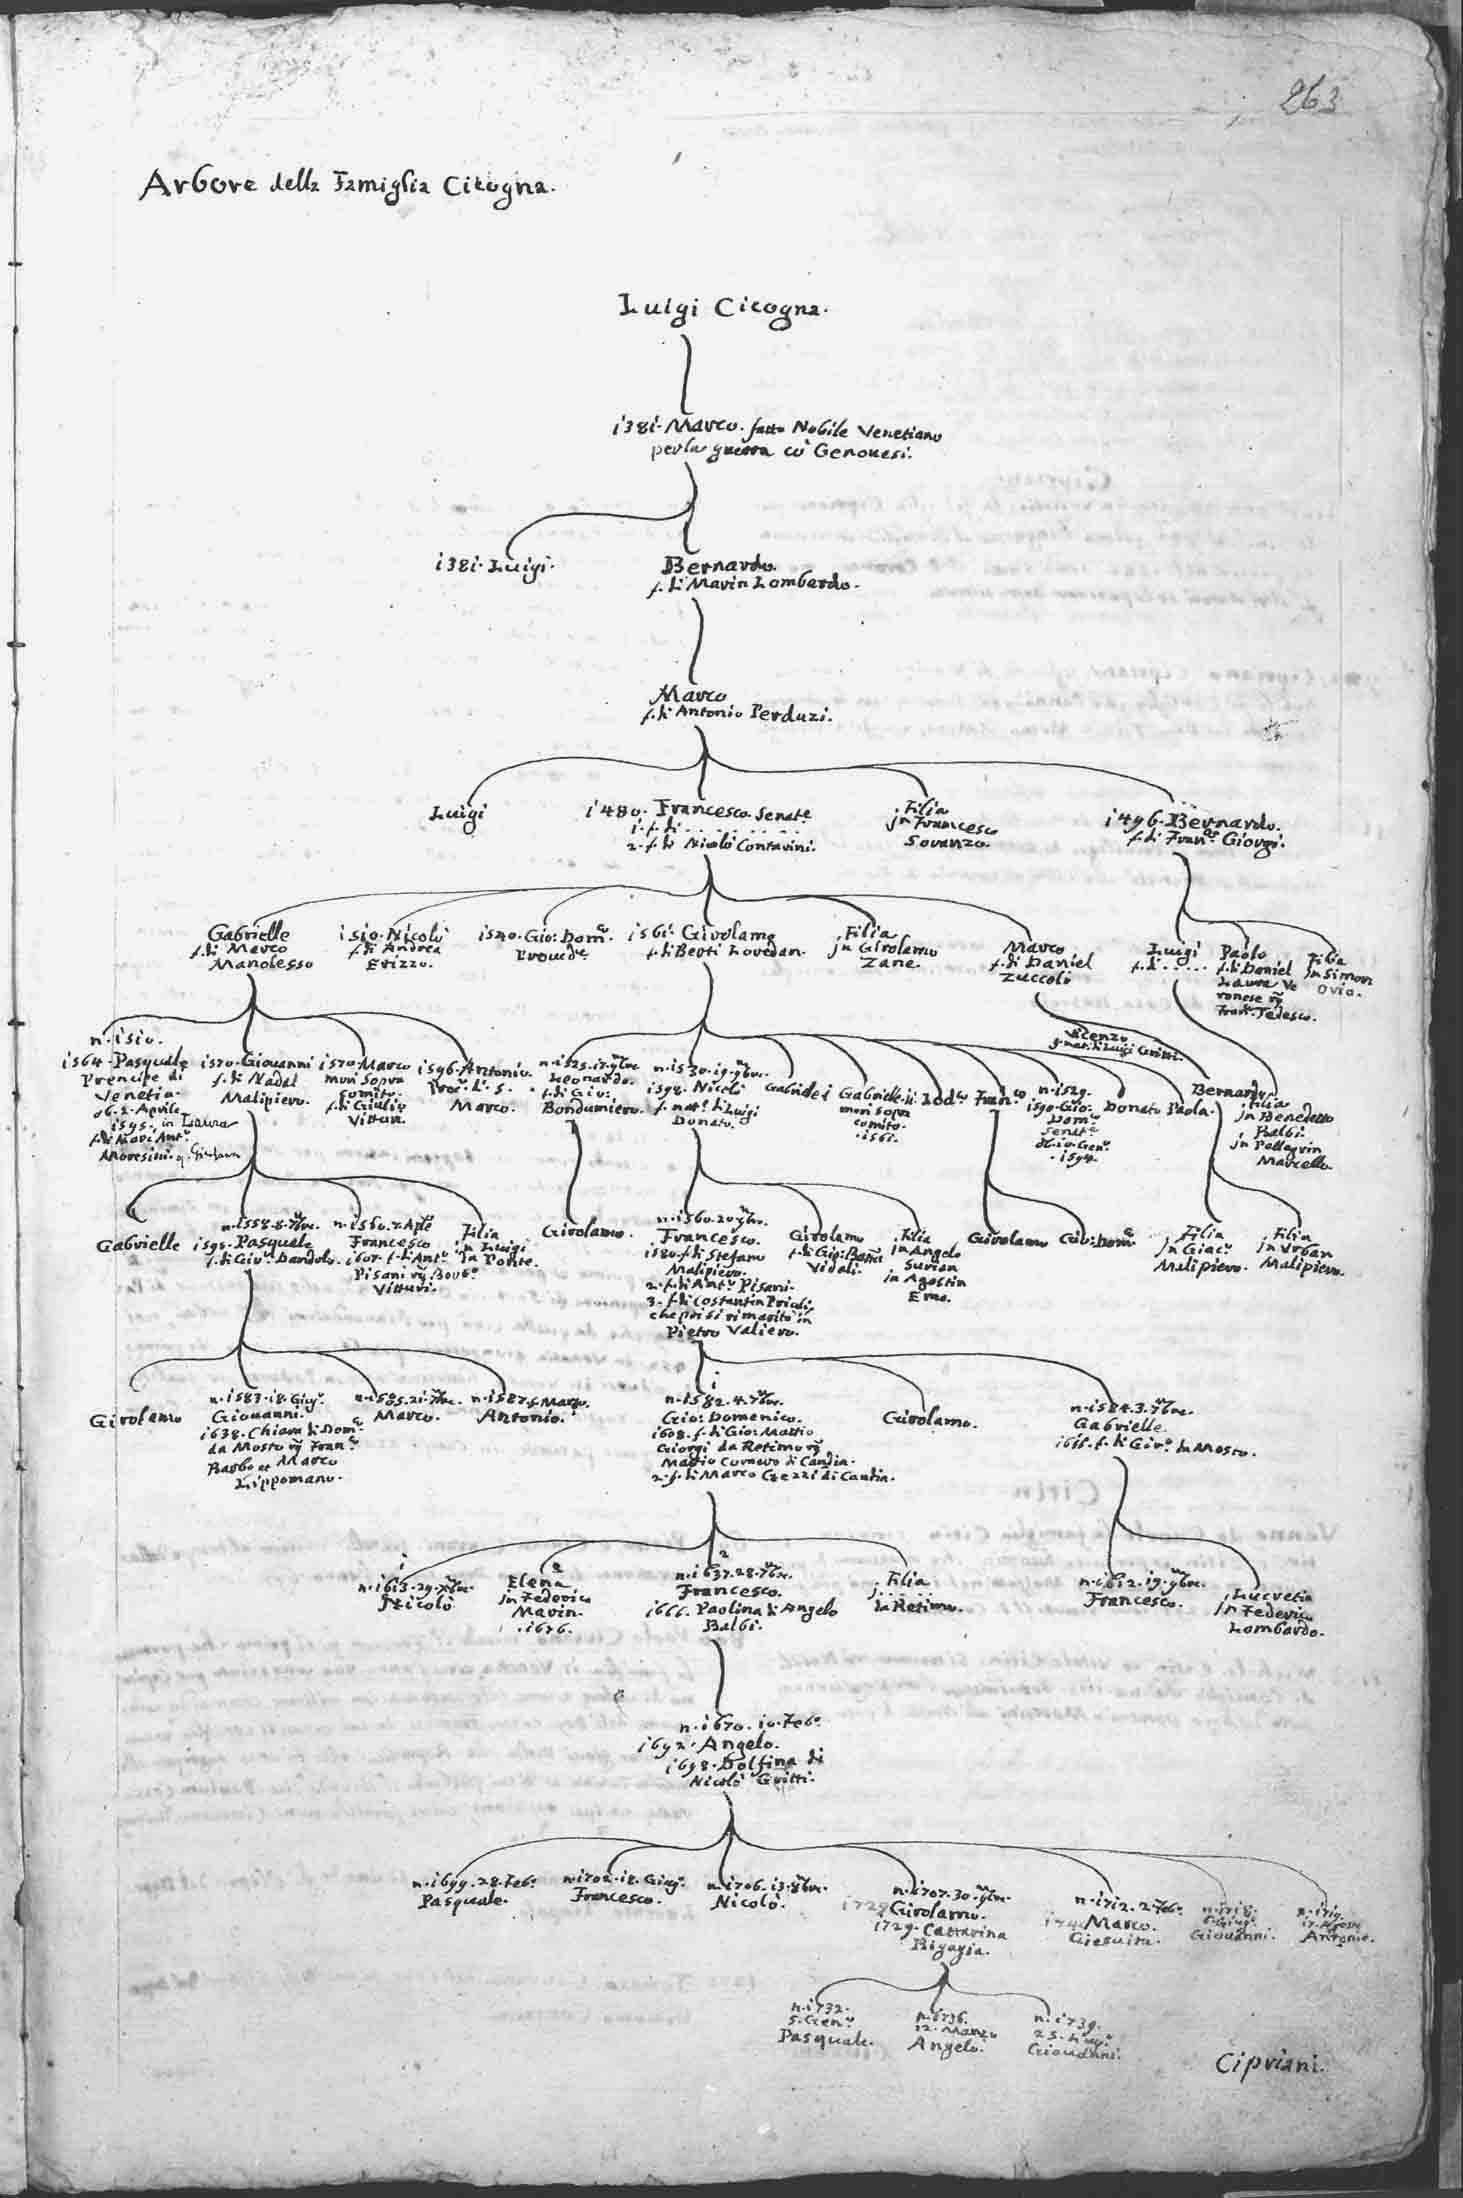 263
Arbore della Famiglia Cicogna.
Luigi Cicogna.
1381. Marco. fatto Nobile Venetiano
per la guerra cō Genovesi.
1381. Luigi.
Bernardo.
f. di Marin Lombardo.
Marco
f. di Antonio Perduzi.
Luigi
1480. Francesco. Senat.e
1. f. di . . . . . . .
2. f. di Nicolò Contarini.
Filia
in Francesco
Soranzo.
1496. Bernardo.
f. di Fran.co Giorgi.
Gabrielle
f. di Marco
Manolesso
1510. Nicolò
f. di Andrea
Erizzo.
1540. Gio: Dom.co
Proued.e
1561. Girolamo
f. di Berti Loredan.
Filia
in Girolamo
Zane.
Marco
f. di Daniel
Zuccoli
Luigi
f. di . . . . .
Paolo
f. di Daniel
Laura Ve
ronese rg
Fran.co Tedesco.
Filia
in Simon
Orio.
n. 1510.
1564. Pasquale
Prencipe di
Venetia.
ob. 2. Aprile
1595. in Laura
Moresini.
1570. Giouanni
f. di Nadal
Malipiero.
1570. Marco
mon Sopra
comito.
f. di Giulio
Vitturi.
1596. Antonio.
Proc. di S.
Marco.
Leonardo.
f. di Gio:
Bondumiero.
n. 1530. 19. 9bre.
1598. Nicolò
f. nat. di Luigi
Donato.
Gabriel. i
Gabrielle. ii
mon Sopra
comito.
1561.
Lod.co
Fran.co
n. 1529.
1590. Gio:
Dom.co
Senat.e
ob. 10. Gen.o
1594.
Donato
Paola.
Vicenzo
f. nat. di Luigi Gritti.
Bernardo
Filia
in Benedetto
Balbi.
in Pellegrin
Marcello.
Gabrielle
n. 1558. 8. 7bre.
1595. Pasquale
f. di Gio: Dandolo.
n. 1560. 2. Aple
Francesco
1605. f. di Ant.o
Pisani rg Bort.o
Vitturi.
Filia
in Luigi
da Ponte.
Girolamo.
n. 1560. 20. 9bre.
Francesco.
1580. f. di Stefano
Malipiero.
2. f. di Ant.o Pisani.
3. f. di Costantin Prioli,
che poi si rimaritò in
Pietro Valiero.
Girolamo
f. di Gio: Batt.a
Vidali.
Filia
in Angelo
Surian
in Agostin
Emo.
Girolamo
Gio: Dom.co
Filia
in Giac.o
Malipiero.
Filia
in Vrban
Malipiero.
Girolamo
n. 1583. 18. Giug.o
Giouanni.
1638. Chiara di Dom.co
da Mosto rg Fran.co
Barbo et Marco
Lippomano.
n. 1585. 21. 7bre.
Marco.
n. 1587. 5. Marzo.
Antonio.
1
n. 1582. 4. 7bre.
Gio: Domenico.
1608. f. di Gio: Mattio
Giorgi da Retimo rg
Mattio Cornero di Candia.
2. f. di Marco Czezzi di Candia.
Girolamo.
n. 1584. 3. 7bre.
Gabrielle.
f. di Gir.o da Mosto.
1
n. 1613. 29. Xbre.
Nicolò
2
Elena
in Federico
Marin.
1676.
2
n. 1637. 28. 7bre.
Francesco.
1666. Paolina di Angelo
Balbi.
Filia
in . . . .
da Retimo.
n. 1612. 19. 9bre.
Francesco.
Lucretia
in Federico
Lombardo.
n. 1670. 10. Feb.o
1692. Angelo.
1698. Dolfina di
Nicolò Gritti.
n. 1699. 28. Feb.o
Pasquale.
n. 1702. 18. Giug.o
Francesco.
n. 1706. 13. 8bre.
Nicolò.
n. 1707. 30. 9bre.
Girolamo.
1729. Cattarina
Bigagia.
n. 1712. 2. Feb.o
Marco.
Giesuita.
n. 1718.
Giouanni.
n. 1719.
17. Agosto
Antonio.
n. 1732.
5. Gen.o
Pasquale.
n. 1736.
12. Marzo
Angelo.
n. 1739.
Giouanni.
Cipriani.